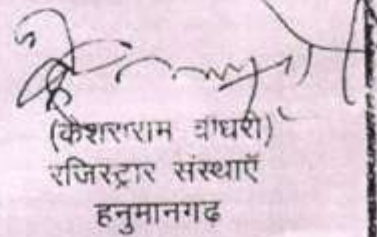 (केशराराम चौधरी)
रजिस्ट्रार संस्थाएँ
हनुमानगढ